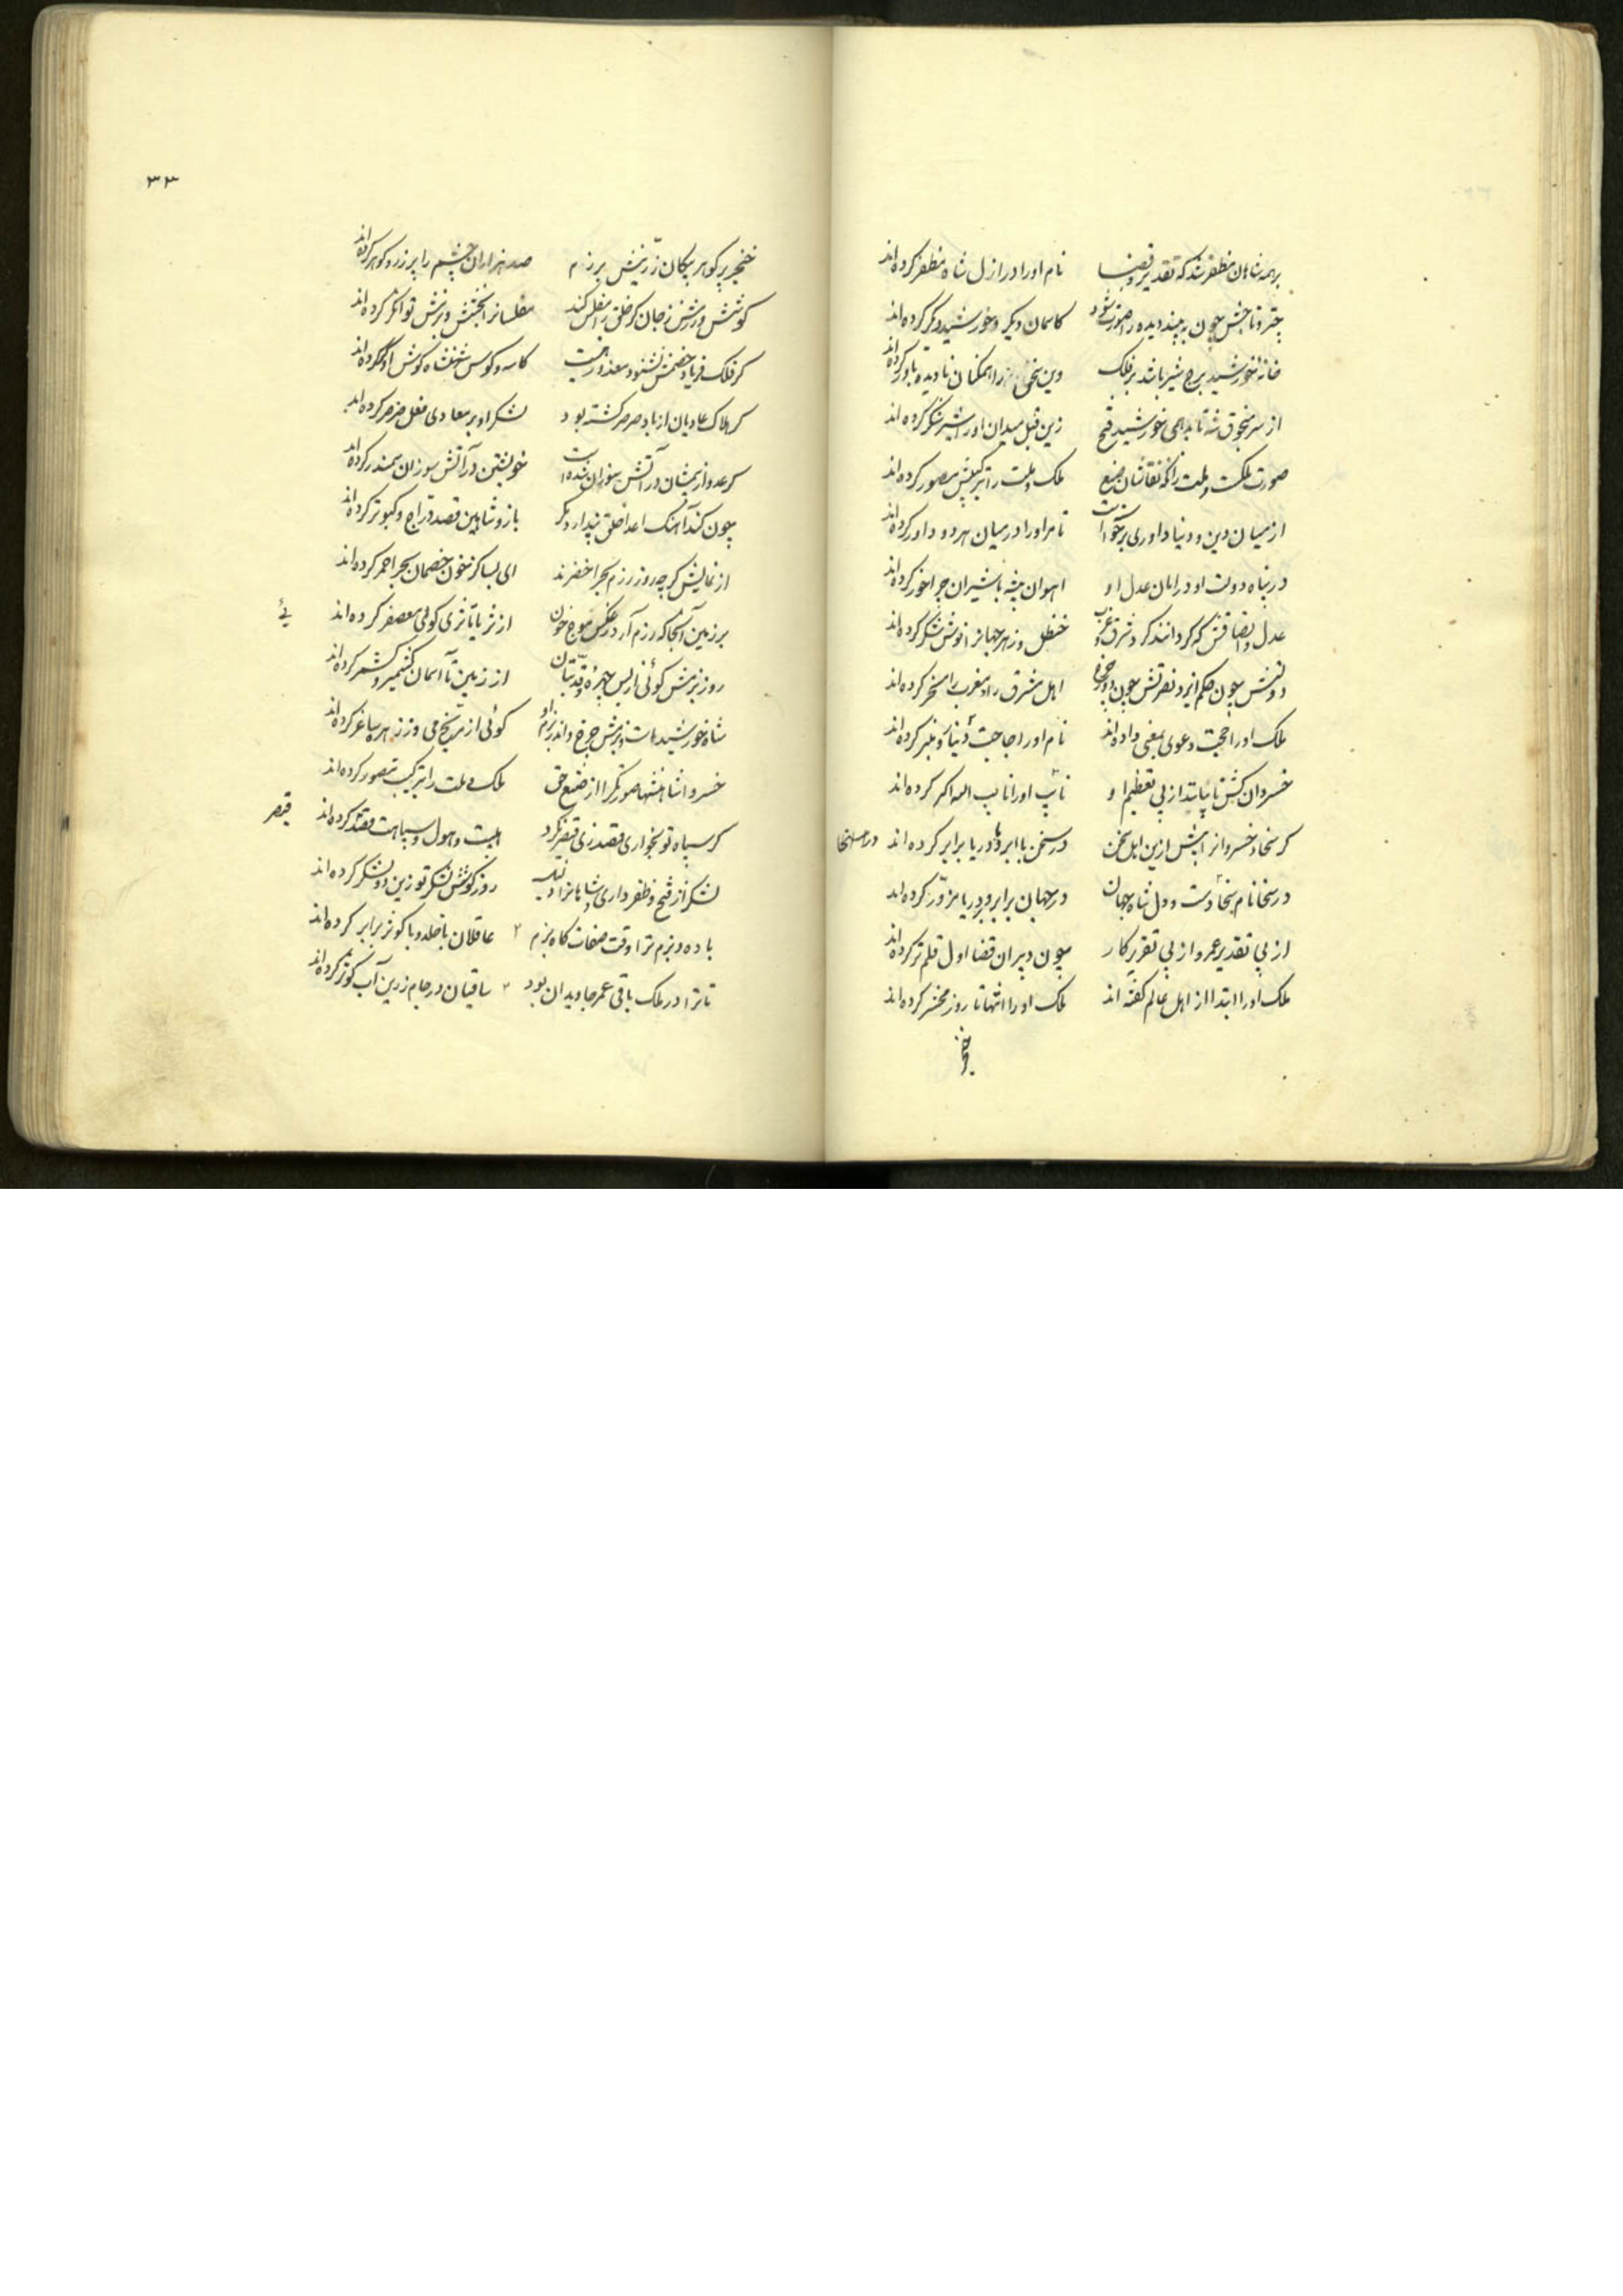 برهمه شاهان مظفر شد که تقدیر و قضا نام او را در ازل شاه مظفر کرده‌اند
چتر و تاجش چون به بیند دیده را صورت شود کاسمان دیگر و خورشید دیگر کرده‌اند
خانهٔ خورشید برج شیر باشد بر فلک وین سخن را همکنان نادیده باور کرده‌اند
از سر منجوق شه تابد همی خورشید فتح زین قبل میدان او را شیر لشکر کرده‌اند
صورت ملکت و ملت را که نقاشان صنع ملک و ملت را بترکیبش مصور کرده‌اند
از میان دین و دنیا داوری برخواست تا مر او را در میان هر دو داور کرده‌اند
در پناه دولت او در امان عدل او اهوان بیشه با شیران چراخور کرده‌اند
عدل و انصافش که کردانند کرد شرق و غرب حنظل و زهر جهانرا نوش شکر کرده‌اند
دولتش چون حکم ایزد نصرتش چون اهل مشرق را و مغرب را مسخر کرده‌اند
ملک او را حجت دعوی بمعنی داده‌اند نام او را حاجت دنیا و منبر کرده‌اند
خسروان کیش تا نپاید از پی تعظیم او نایب او را نایب الله اکبر کرده‌اند
کر سخا و خسروانرا پیش ازین اهل سخن در سخن با ابر و با دریا برابر کرده‌اند
در سخا نام سخا دست و دل شاه جهان در جهان بر ابر و بر دریا مزور کرده‌اند
از پی تقدیر عمر و از پی تقریر کار چون دبیران قضا اول قلم تر کرده‌اند
ملک او را ابتدا از اهل عالم کفته اند ملک او را انتها تا روز محشر کرده‌اند
۳۳
خنجر پر کوهر پیکان زرینش برزم صد هزاران چشم را پر زر و کوهر کرده‌اند
کوشش و رزمش ز جان کر خلق را مفلس کند مفلسانرا بخشش و بزمش توانکر کرده‌اند
کر فلک فریاد خصمش نشنود معذور هست کاسه و کوس شهنشاه کوش او کر کرده‌اند
کر هلاک عادیان از باد صرصر کشته بود لشکر او بر معادی فعل صرصر کرده‌اند
کر عدو از بیمشان در آتش سوزان شده است خویشتن در آتش سوزان سمندر کرده‌اند
چون کند آهنک اعدا خلق پندارد مکر باز و شاهین قصد دراج و کبوتر کرده‌اند
از نمایش کر چه روز رزم بحر اخضرند ای بسا کز خون خصمان بحر احمر کرده‌اند
بر زمین آنجا که رزم آرد ز عکس موج خون از ثریا تا ثری کوئی معصفر کرده‌اند
روز بزمش کوئی از بس چهره و قد بتان از زمین تا آسمان کشمیر و کشمر کرده‌اند
شاه خورشید است و بزمش چرخ و اندر بزم او کوئی از مریخ می وز زهره ساغر کرده‌اند
خسروا شاهنشها صورتکرا از صنع حق ملک و ملت را بترکیب تصور کرده‌اند
کر سپاه تو بخواری قصد زی قیصر کرد هیبت و هول سپاهت قصد کرده‌اند
قیصر
لشکر از فتح و ظفر داری شاها نزاد روز کوشش لشکر تو زین دو لشکر کرده‌اند
باده و بزم ترا وقت صفات کاه بزم عاقلان با خلد و با کوثر برابر کرده‌اند
تا ترا در ملک باقی عمر جاویدان بود ساقیان در جام زرین آب کوثر کرده‌اند